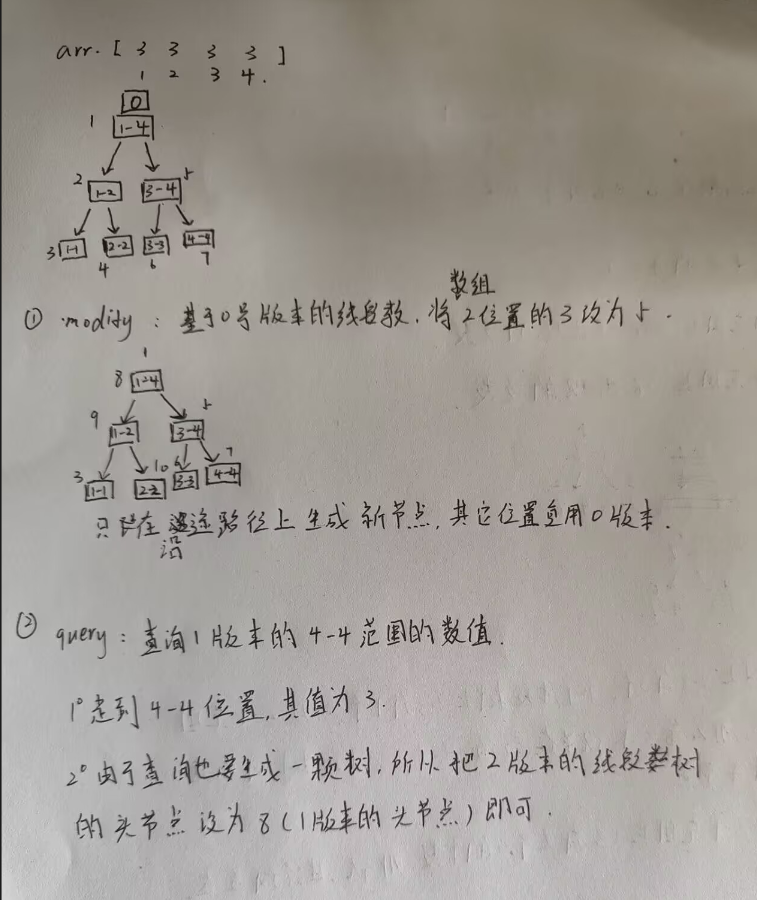 arr. [ 3 3 3 3 ]
1 2 3 4.
0
1 1-4
2 1-2 3-4 5
3 1-1 2-2 3-3 4-4
4 6 7
数组
① modify: 基于0号版本的线段数, 将2位置的3改为5.
1
8 1-4
9 1-2 3-4 5
3 1-1 2-2 10 6 3-3 4-4 7
只在沿途路径上生成新节点, 其它位置复用0版本.
沿
② query: 查询1版本的4-4范围的数值.
1° 走到4-4位置, 其值为3.
2° 由于查询也要生成一颗树, 所以把2版本的线段树
的头节点设为8(1版本的头节点)即可.